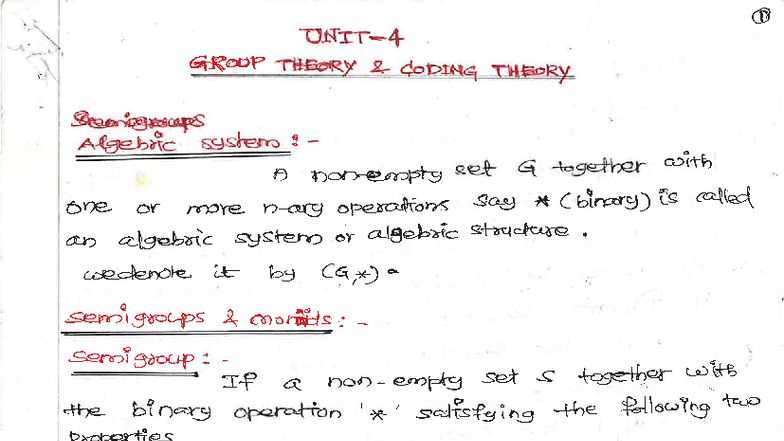 1
UNIT-4
GROUP THEORY & CODING THEORY
Semigroups
Algebric system :-
A non-empty set G together with
one or more n-ary operations say * (binary) is called
an algebric system or algebric structure.
wedenote it by (G,*).
semigroups & :-
semigroup :-
If a non-empty set S together with
the binary operation '*' satisfying the following two
properties